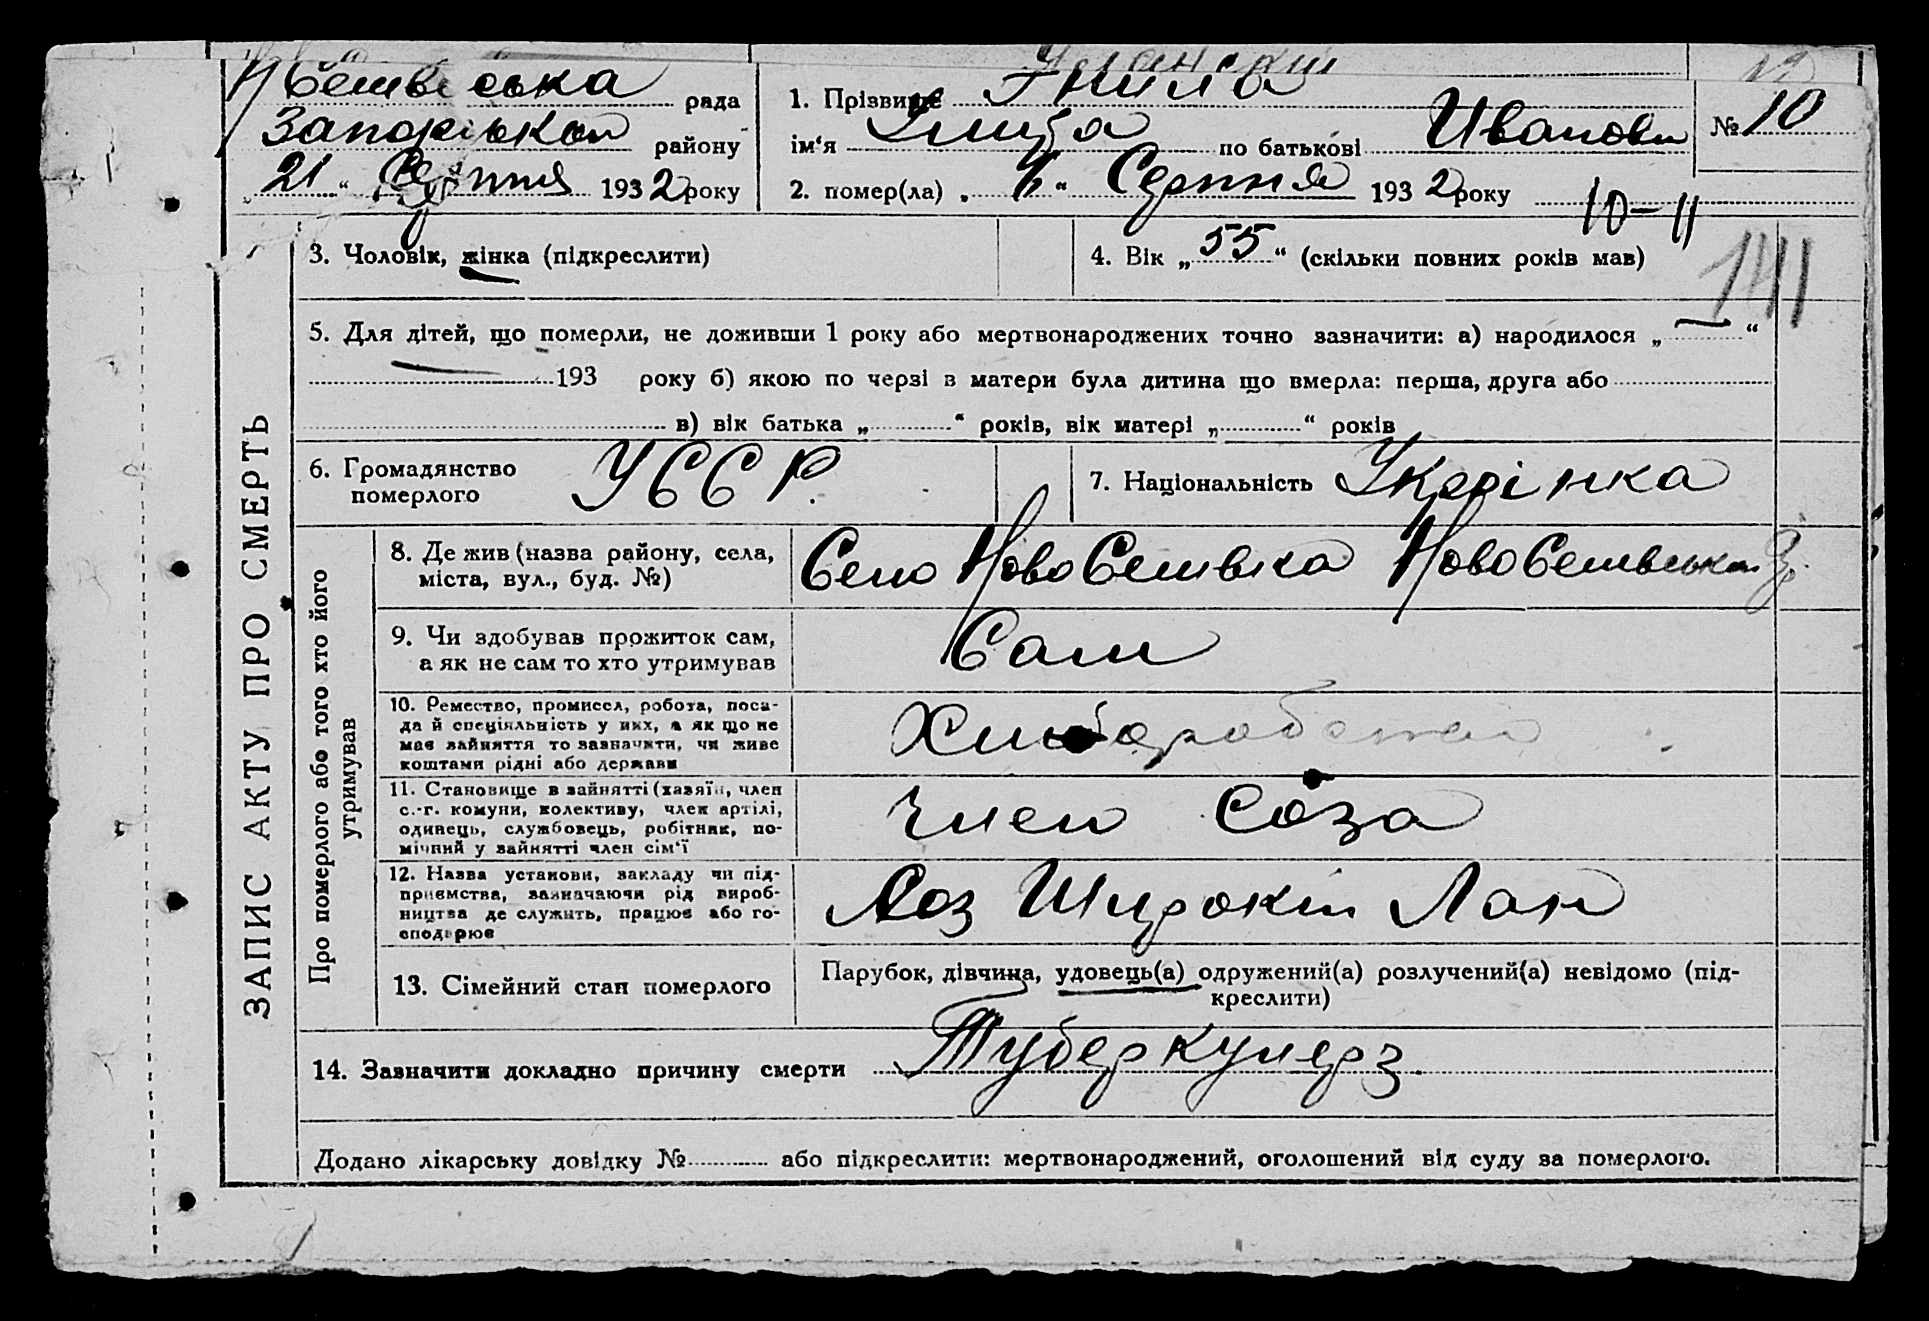 Н Селивська рада
Запорізької району
„21“ Серпня 1932 року
1. Прізвище Гнила
ім‘я по батькові Иванови
№ 10
2. помер(ла) „ “ Серпня 1932 року
10-11
3. Чоловік, жінка (підкреслити)
4. Вік „55“ (скільки повних років мав)
141
5. Для дітей, що померли, не доживши 1 року або мертвонароджених точно зазначити: а) народилося „ — “
— 193 року б) якою по черзі в матери була дитина що вмерла: перша, друга або
в) вік батька „ “ років, вік матері „ “ років
6. Громадянство
померлого
УССР.
7. Національність Украінка
ЗАПИС АКТУ ПРО СМЕРТЬ
Про померлого або того хто його
утримував
8. Де жив (назва району, села,
міста, вул., буд. №)
Село Ново Селивка Ново Селивської
9. Чи здобував прожиток сам,
а як не сам то хто утримував
Сам
10. Ремество, промисел, робота, поса-
да й спеціяльність у них, а як що не
має зайняття то зазначити, чи живе
коштами рідні або держави
Хлибаробство
11. Становище в зайнятті (хазяїн, член
с.-г. комуни, колективу, член артілі,
одинець, службовець, робітник, по-
мічний у зайнятті член сім‘ї
Член Соза
12. Назва установи, закладу чи під-
приємства, зазначаючи рід вироб-
ництва де служить, працює або го-
сподарює
Соз Широкій Лан
13. Сімейний стан померлого
Парубок, дівчина, удовець(а) одружений(а) розлучений(а) невідомо (під-
креслити)
14. Зазначити докладно причину смерти Туберкулерз
Додано лікарську довідку № або підкреслити: мертвонароджений, оголошений від суду за померлого.